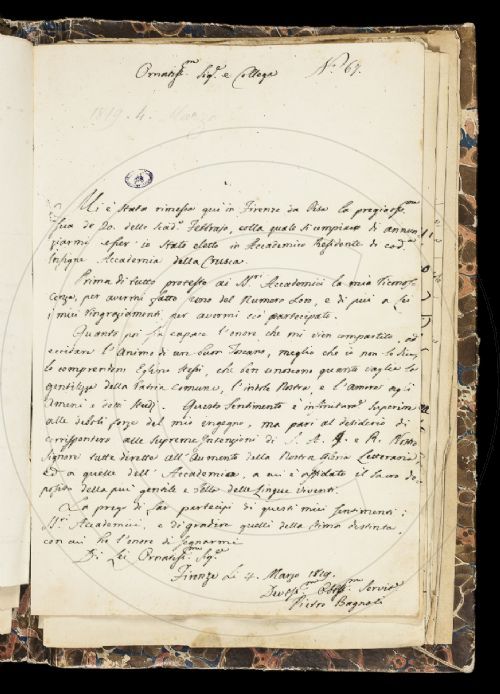 Ornatiss.mo Sig.e e Collega N.o 67.
1819. 4. Marzo
Mi è stata rimessa qui in Firenze da Pisa la pregiatiss.ma
sua de 20. dello scad.o Febbrajo, colla quale si compiace di annun-
ziarmi esser io stato eletto in Accademico Residente di cod.a
Insigne Accademia della Crusca.
Prima di tutto protesto ai SS.ri Accademici la mia Riconos-
cenza, per avermi fatto uno del Numero Loro, e di più a Lei
i miei ringraziamenti per avermi ciò partecipato.
Quanto poi sia capace l'onore che mi vien compartito, ad
eccitare l'Animo di un buon Toscano, meglio che io non lo dico,
lo comprendon Essino stessi, che ben conoscono quanto vaglia la
gentilezza della Patria comune, l'indole nostra, e l'amore agli
Ameni e dotti studj. Questo sentimento è in me superiore
alle deboli forze del mio ingegno, ma pari al desiderio di
corrispondere alle supreme Intenzioni di S. A. I. e R. Nostro
Signore tutte dirette all'Aumento della Nostra Gloria Letteraria
ed a quelle dell'Accademia, a cui è affidato il sacro de-
posito della più gentile e bella delle Lingue viventi.
La prego di far partecipi di questi miei sentimenti i
SS.ri Accademici, e di gradire quelli della stima distinta,
con cui ho l'onore di segnarmi
Di Lei Ornatiss.mo Sig.e
Firenze Li 4. Marzo 1819.
Devotiss.mo Obbl.mo Servit.e
Pietro Bagnoli